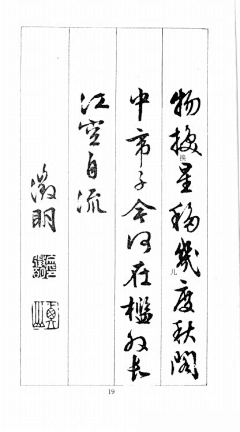 物换星移几度秋阁
中帝子今何在槛外长
江空自流
徵明
19